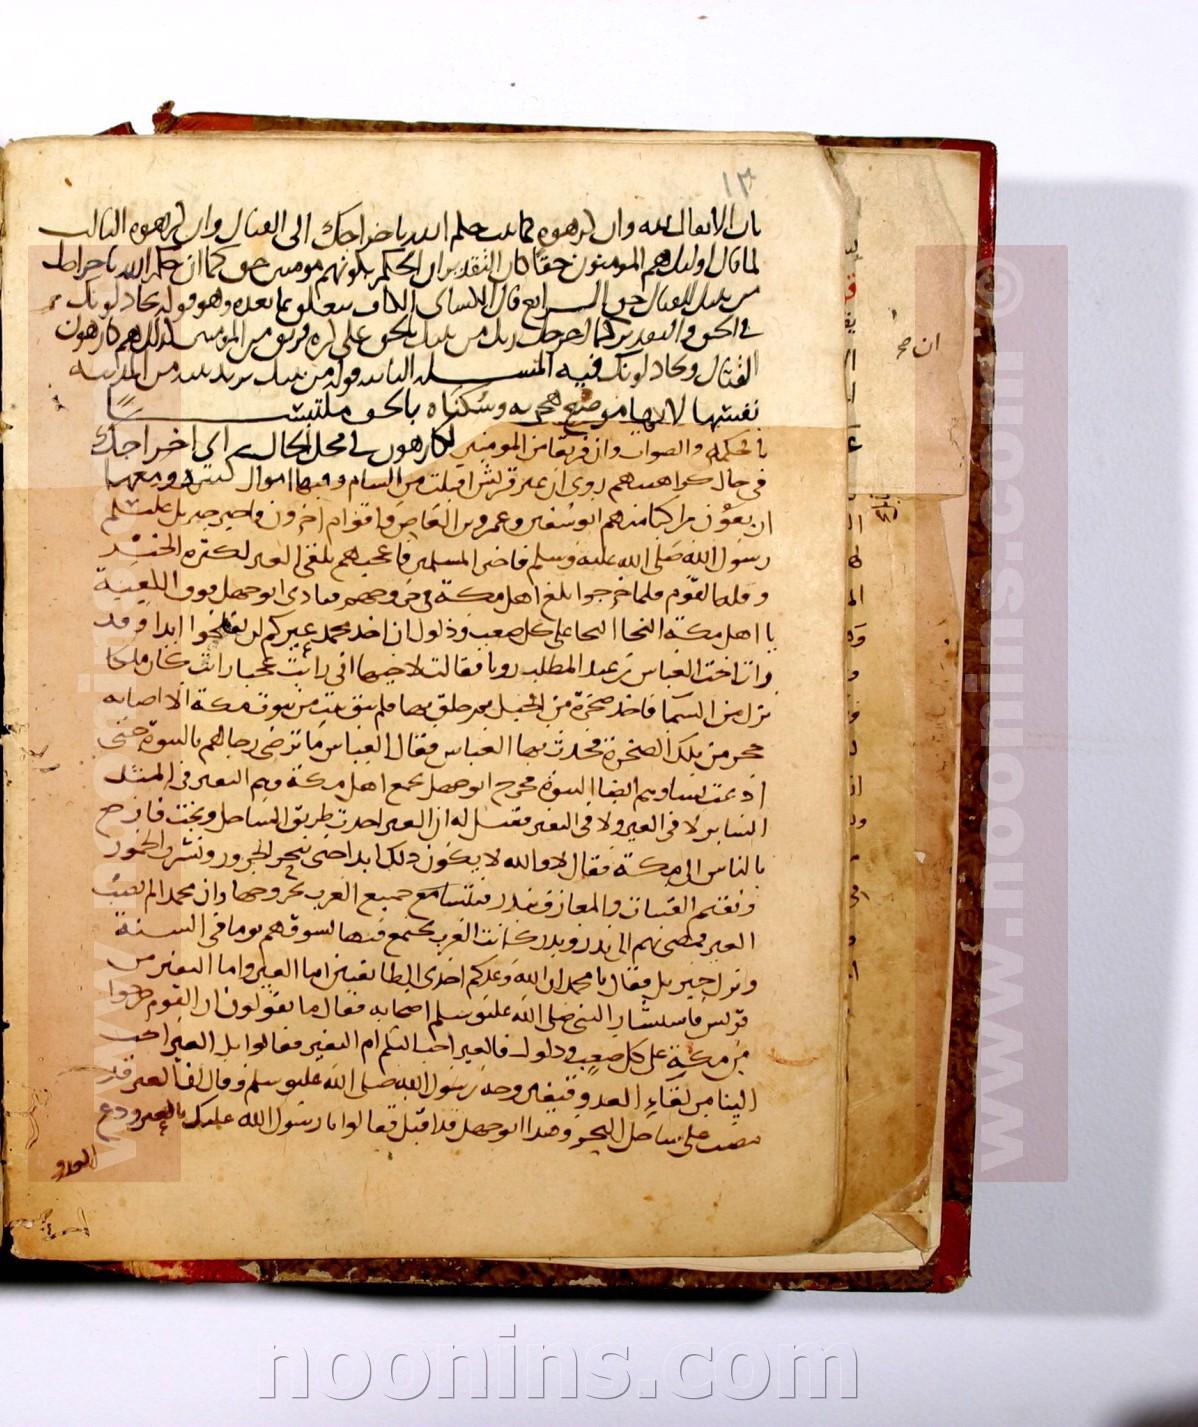 ١٣
بان الانفال لله وان كرهوه كما ثبت حكم الله باخراجك الى القتال وان كرهوه الثالث
لما قال اولئك هم المؤمنون حقا كان التقدير ان الحكم بكونهم مومنين حق كما ان حكم الله باخراجك
من بيتك للقتال حق الرابع قال الكسائي الكاف متعلق بما بعده وهو قوله يجادلونك
في الحق والتقدير كما اخرجك ربك من بيتك بالحق على كره فريق من المومنين كذلك هم كارهون
القتال ويجادلونك فيه المسئلة الثانية قوله من بيتك يريد بيته من المدينة
نفسها لانها موضع هجرته وسكناه بالحق ملتبسا
بالحكمة والصواب وان فريقا من المومنين لكارهون في محل الحال اي اخراجك
في حال كراهتهم روي ان عير قريش اقبلت من الشام وفيها اموال كثيرة ومعها
اربعون راكبا منهم ابو سفين وعمرو بن العاص واقوام اخرون فاخبر جبريل عليه السلم
رسول الله صلى الله عليه وسلم فاخبر المسلمين فاعجبهم تلقي العير لكثرة الخير
وقلة القوم فلما خرجوا بلغ اهل مكة خروجهم فنادى ابو جهل فوق الكعبة
يا اهل مكة النجا النجا على كل صعب وذلول ان اخذ محمد عيركم لن تفلحوا ابدا وقد
رات اخت العباس بن عبد المطلب رويا فقالت لاخيها اني رايت عجبا رايت كان ملكا
نزل من السما فاخذ صخرة من الجبل ثم حلق بها فلم يبق بيت من بيوت مكة الا اصابه
حجر من تلك الصخرة فحدث بها العباس فقال العباس ما ترضى رجالهم بالنبوة حتى
ادعت نساوهم ايضا النبوة فخرج ابو جهل بجمع اهل مكة وهم النفير في المثل
الساير لا في العير ولا في النفير فقيل له ان العير اخذت طريق الساحل ونجت فارجع
بالناس الى مكة فقال لا والله لا يكون ذلك ابدا حتى ننحر الجزور ونشرب الخمور
ونقيم القينات والمعازف ببدر فيتسامع جميع العرب بخروجها وان محمدا لم يصب
العير فمضى بهم الى بدر وبدر كانت العرب تجتمع فيها لسوقهم يوما في السنة
ونزل جبريل فقال يا محمد ان الله وعدكم احدى الطايفتين اما العير واما النفير من
قريش فاستشار النبي صلى الله عليه وسلم اصحابه فقال ما تقولون ان القوم خرجوا
من مكة على كل صعب وذلول فالعير احب اليكم ام النفير فقالوا بل العير احب
الينا من لقاء العدو فتغير وجه رسول الله صلى الله عليه وسلم وقال ان العير قد
مضت على ساحل البحر وهذا ابو جهل قد اقبل فقالوا يا رسول الله عليك بالعير ودع
العدو
ان صح
www.noonins.com ©
noonins.com